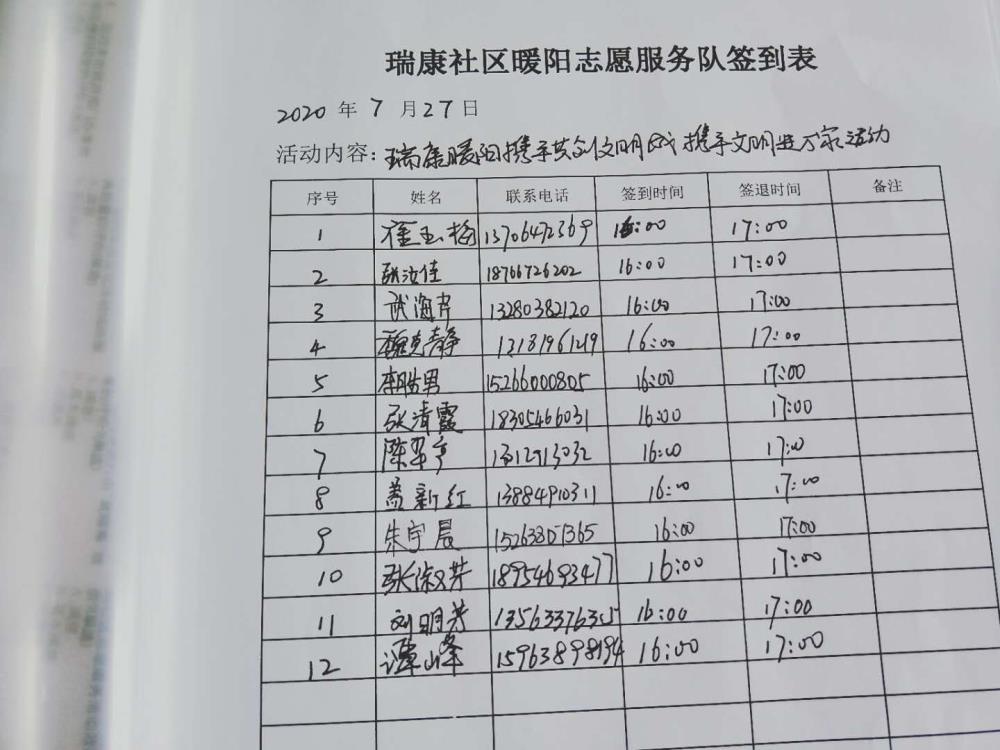 瑞康社区暖阳志愿服务队签到表
2020 年 7 月 27 日
活动内容：瑞康暖阳携手共创文明城 携手文明进万家活动
序号 姓名 联系电话 签到时间 签退时间 备注
1 崔玉梅 13706472369 16:00 17:00
2 张汝佳 18766726202 16:00 17:00
3 武海芹 13280382120 16:00 17:00
4 魏克静 16:00 17:00
5 李胜男 15266000805 16:00 17:00
6 张清霞 18305466031 16:00 17:00
7 陈翠亭 16:00 17:00
8 盖新红 13884910311 16:00 17:00
9 朱宇晨 15263851365 16:00 17:00
10 张淑芳 18954693477 16:00 17:00
11 刘明芳 16:00 17:00
12 谭峰 15963898194 16:00 17:00